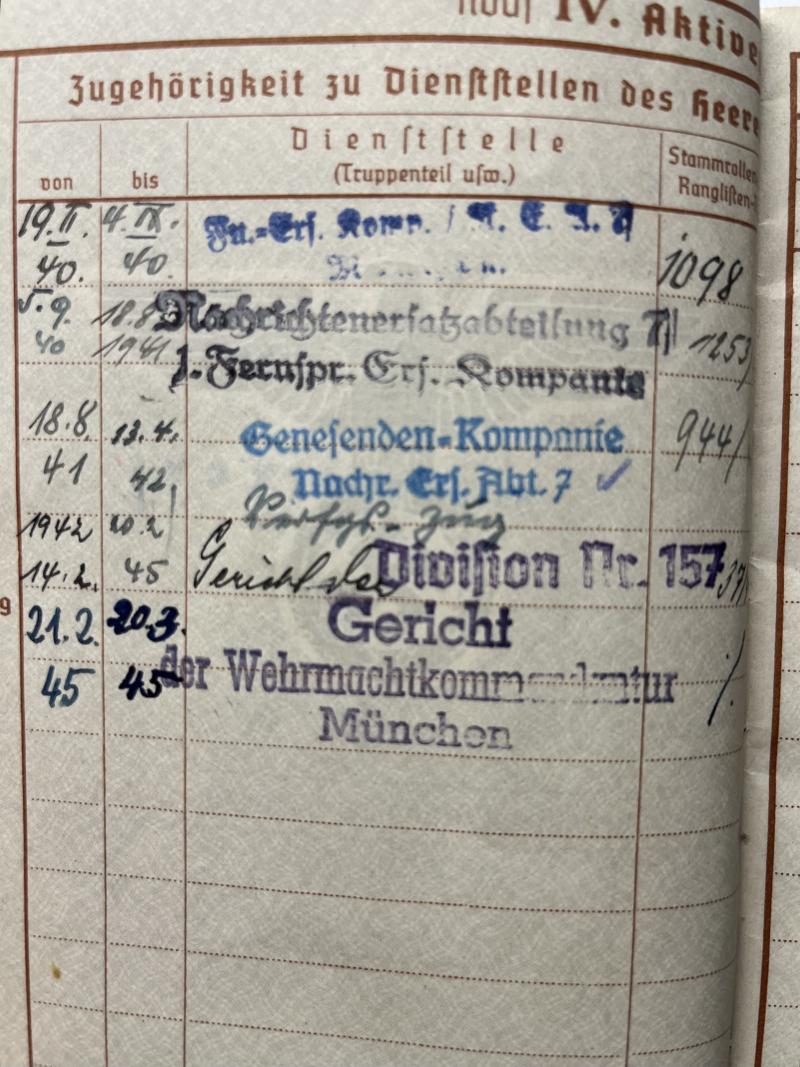 noch IV. Aktive
Zugehörigkeit zu Dienststellen des Heere
von bis Dienststelle Stammrollen
(Truppenteil usw.) Ranglisten-
19.II. 4.IX. Fu.=Ers. Komp. / N. E. A. 7
40. 40. 1098
5.9. 18.8 Nachrichtenersatzabteilung 7
40 1941 1. Fernspr. Ers. Kompanie 1253
18.8. 13.4. Genesenden=Kompanie 944/
41 42 Nachr. Ers. Abt. 7
1942 20.2 Zug
14.2. 45 Gericht der Division Nr. 157
9
21.2. 20.3. Gericht
45 45 der Wehrmachtkommandantur
München